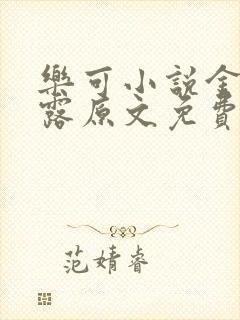 樂可小說金
露原文免費
范婧睿